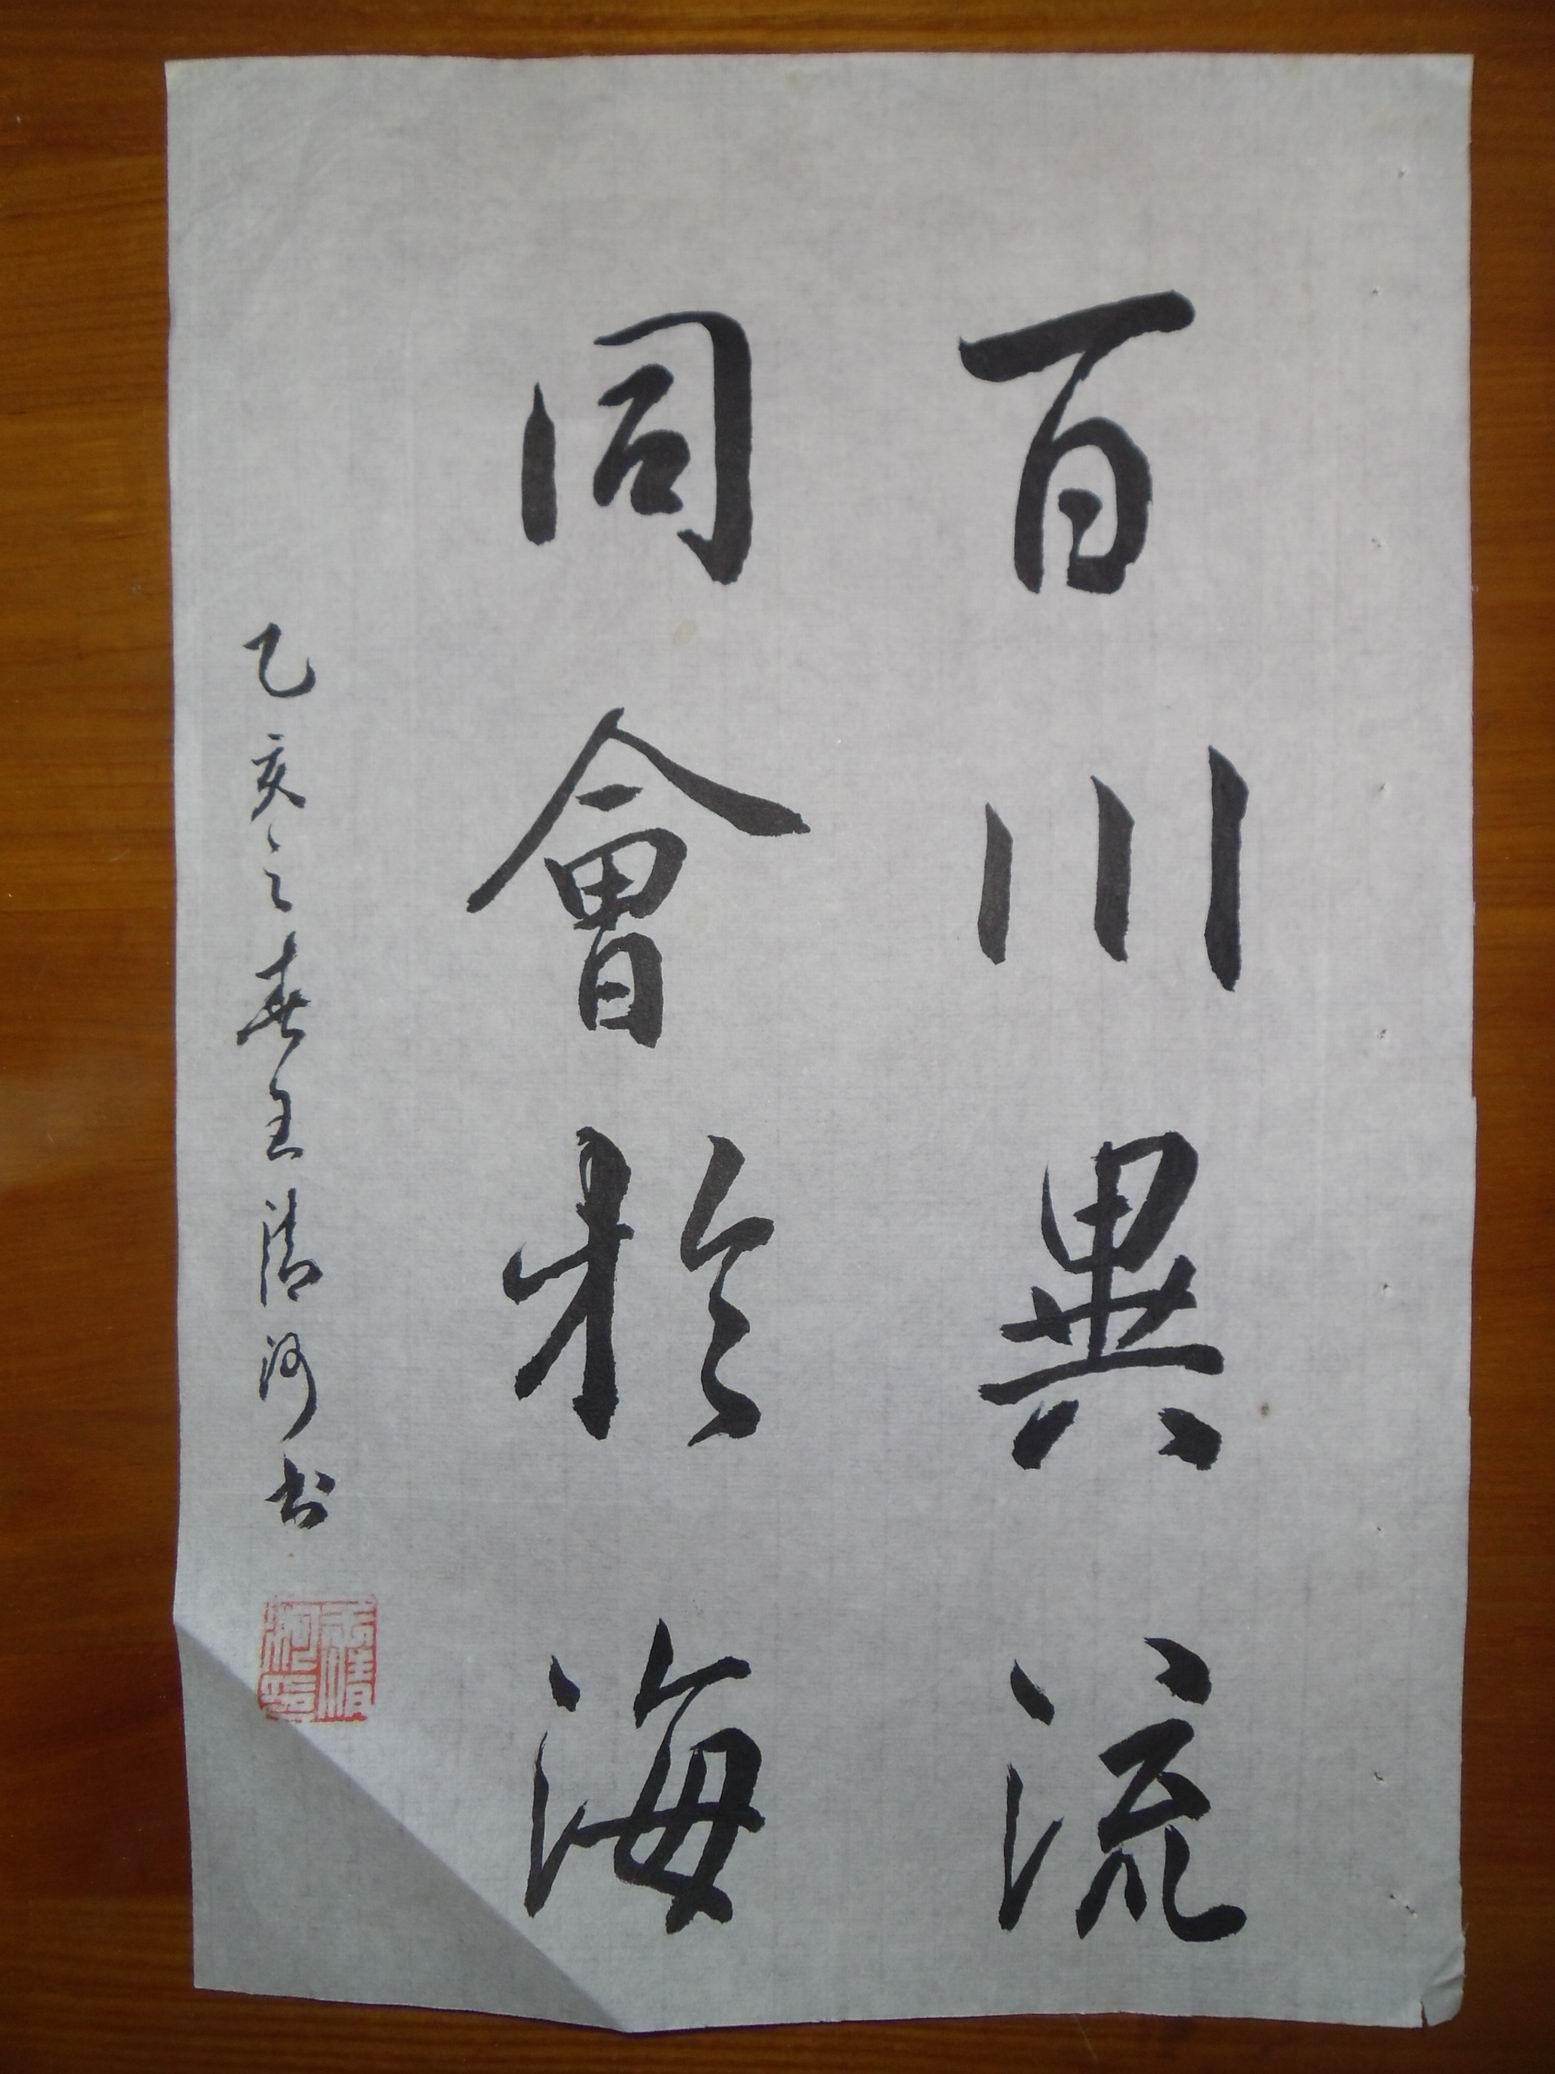 百川異流
同會於海
乙亥之春王清河书